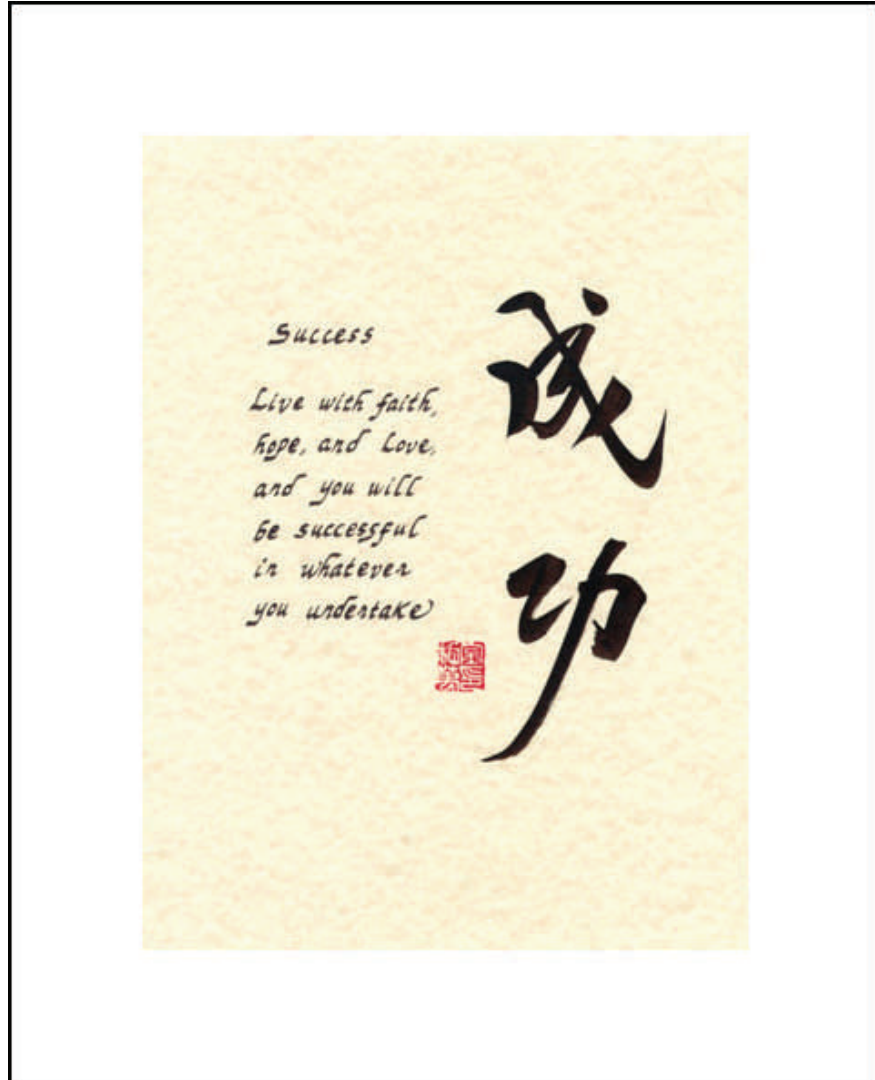 Success
Live with faith,
hope, and Love,
and you will
be successful
in whatever
you undertake
成功